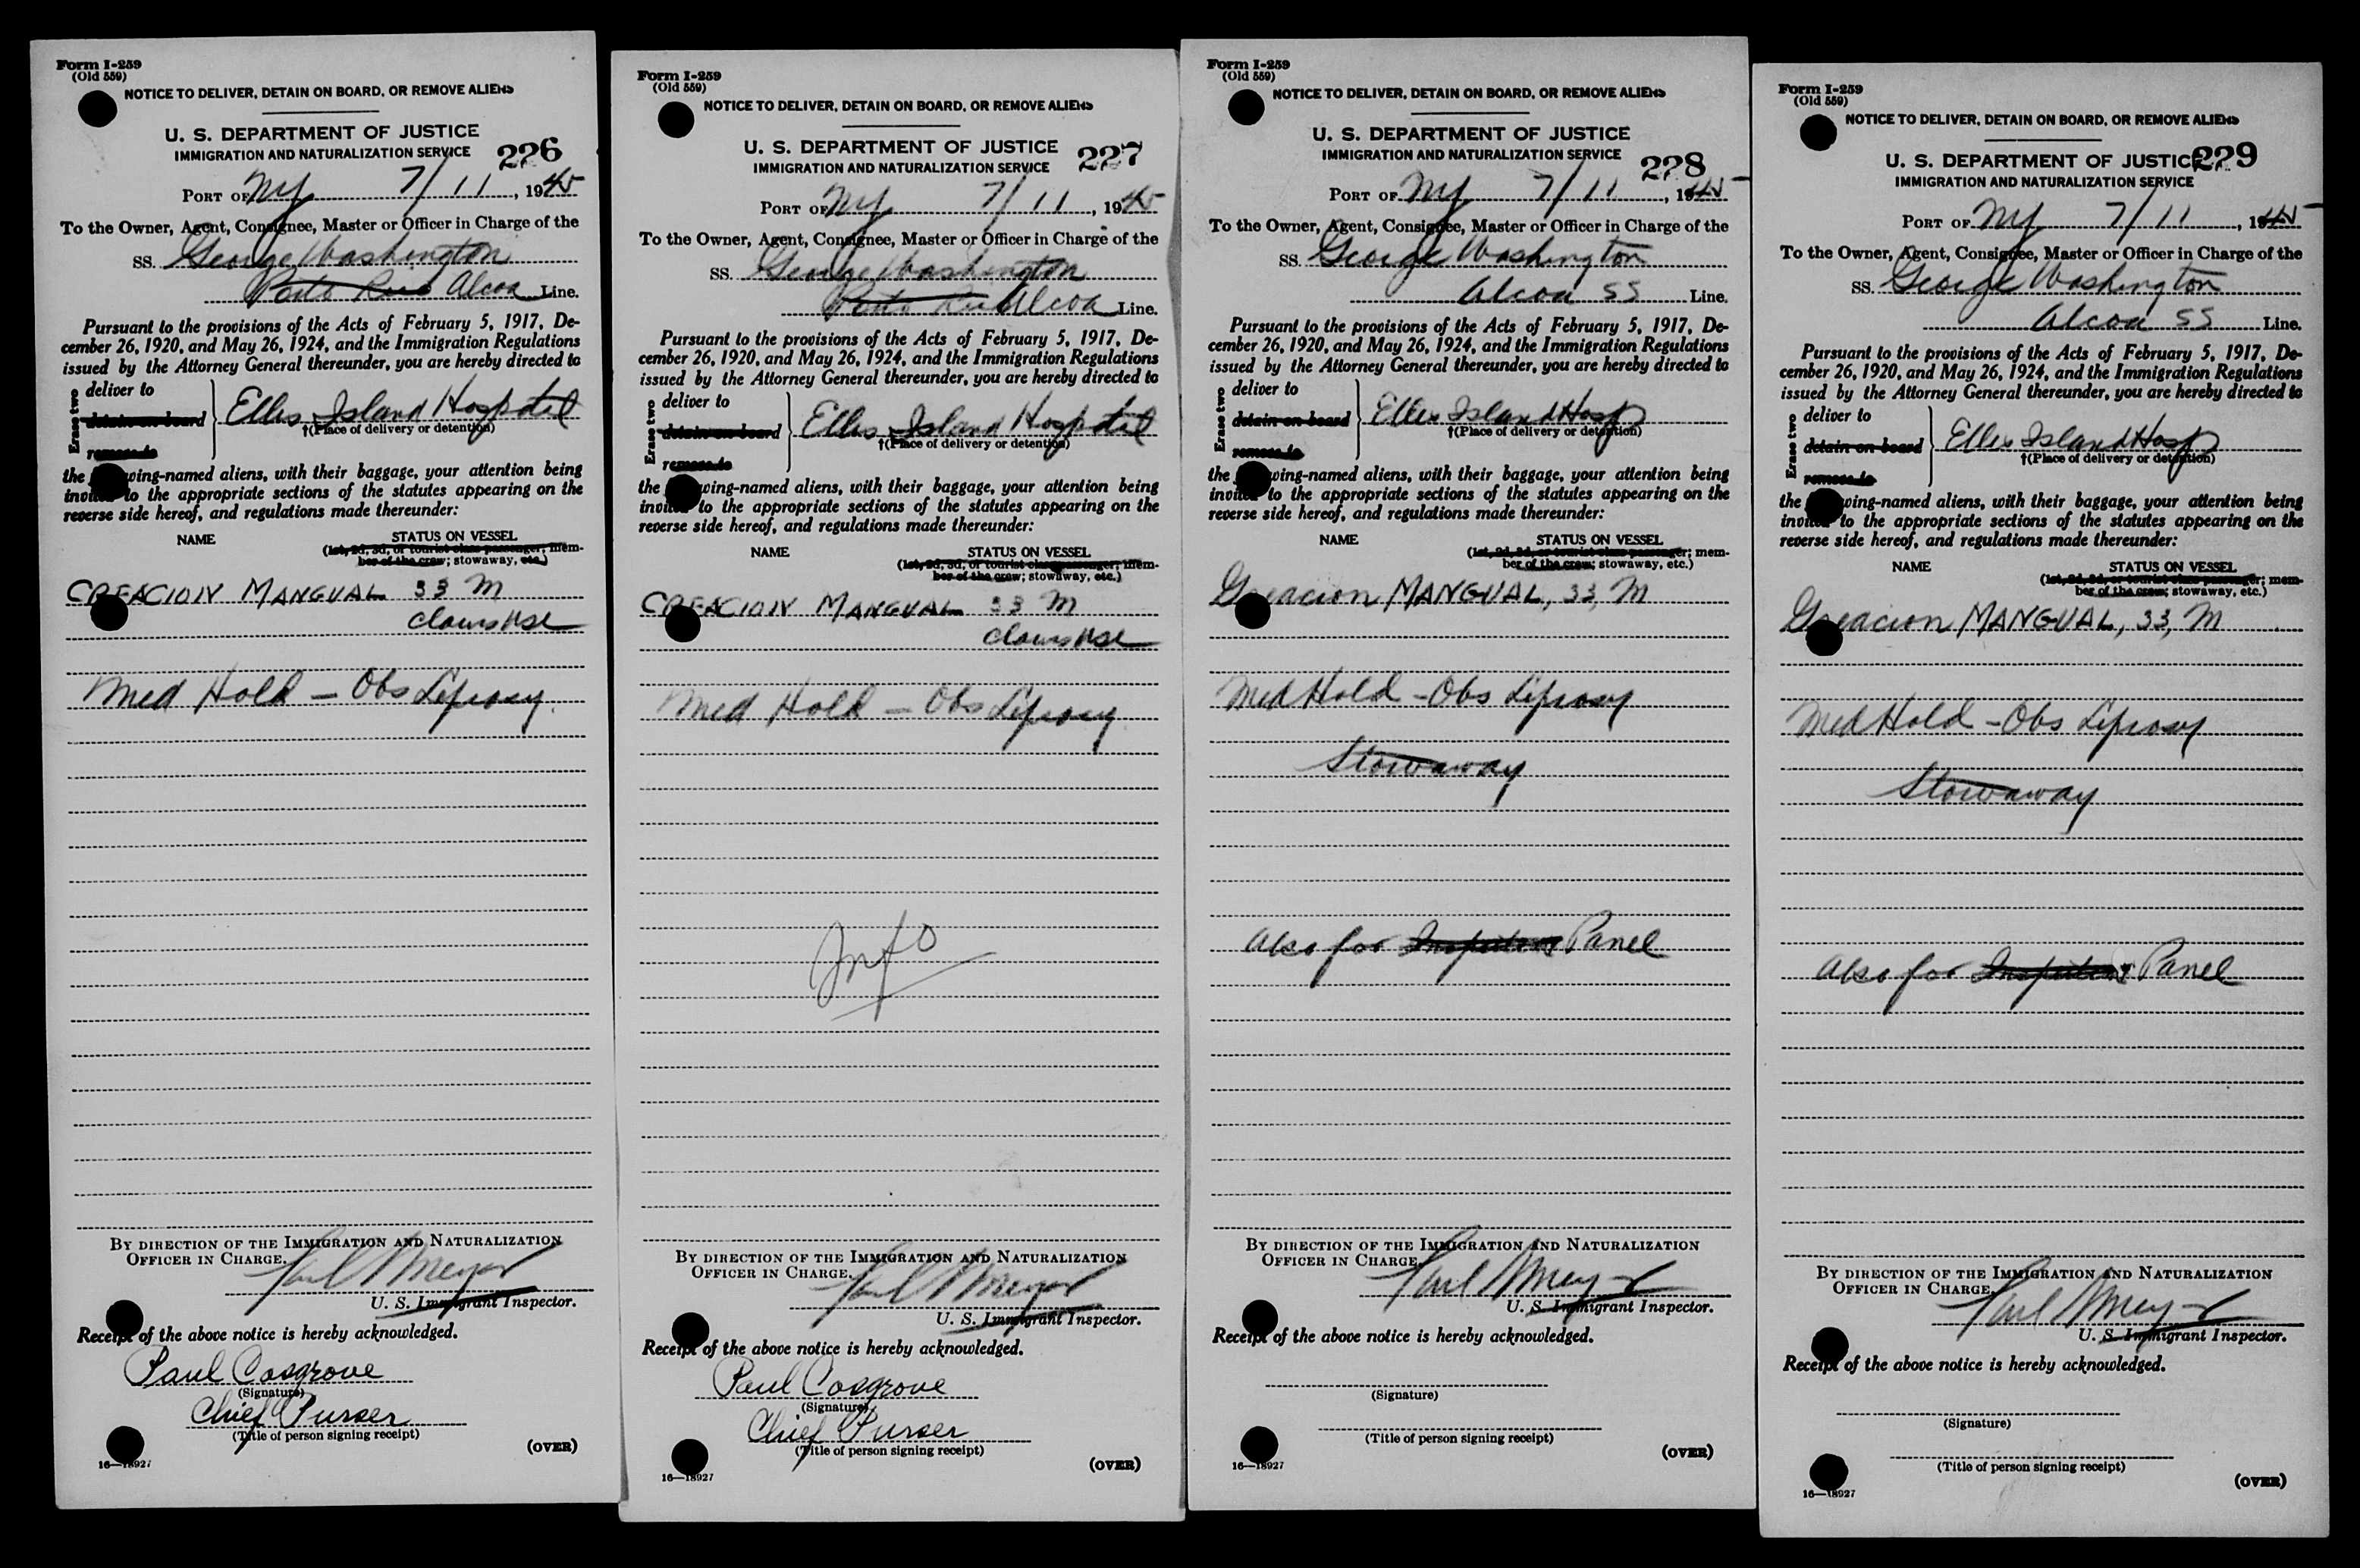 Form I-259
(Old 559)
NOTICE TO DELIVER, DETAIN ON BOARD, OR REMOVE ALIENS
U. S. DEPARTMENT OF JUSTICE
226
IMMIGRATION AND NATURALIZATION SERVICE
PORT OF NY 7/11, 1945
To the Owner, Agent, Consignee, Master or Officer in Charge of the
SS. George Washington
Porto Rico Alcoa Line.
Pursuant to the provisions of the Acts of February 5, 1917, De-
cember 26, 1920, and May 26, 1924, and the Immigration Regulations
issued by the Attorney General thereunder, you are hereby directed to
Erase two
deliver to
detain on board
remove to
Ellis Island Hospital
†(Place of delivery or detention)
the wing-named aliens, with their baggage, your attention being
invited to the appropriate sections of the statutes appearing on the
reverse side hereof, and regulations made thereunder:
NAME
STATUS ON VESSEL
(1st, 2d, 3d, or tourist class passenger; mem-
ber of the crew; stowaway, etc.)
CREACION MANGUAL 33 M
claims USC
Med Hold - Obs Leprosy.
BY DIRECTION OF THE IMMIGRATION AND NATURALIZATION
OFFICER IN CHARGE.
Paul Meyer
U. S. Immigrant Inspector.
Receipt of the above notice is hereby acknowledged.
Paul Cosgrove
(Signature)
Chief Purser
(Title of person signing receipt)
(OVER)
16—18927
Form I-259
(Old 559)
NOTICE TO DELIVER, DETAIN ON BOARD, OR REMOVE ALIENS
U. S. DEPARTMENT OF JUSTICE
227
IMMIGRATION AND NATURALIZATION SERVICE
PORT OF NY 7/11, 1945
To the Owner, Agent, Consignee, Master or Officer in Charge of the
SS. George Washington
Porto Rico Alcoa Line.
Pursuant to the provisions of the Acts of February 5, 1917, De-
cember 26, 1920, and May 26, 1924, and the Immigration Regulations
issued by the Attorney General thereunder, you are hereby directed to
Erase two
deliver to
detain on board
remove to
Ellis Island Hospital
†(Place of delivery or detention)
the wing-named aliens, with their baggage, your attention being
invited to the appropriate sections of the statutes appearing on the
reverse side hereof, and regulations made thereunder:
NAME
STATUS ON VESSEL
(1st, 2d, 3d, or tourist class passenger; mem-
ber of the crew; stowaway, etc.)
CREACION MANGUAL 33 M
claims USC
Med Hold - Obs Leprosy.
Info
BY DIRECTION OF THE IMMIGRATION AND NATURALIZATION
OFFICER IN CHARGE.
Paul Meyer
U. S. Immigrant Inspector.
Receipt of the above notice is hereby acknowledged.
Paul Cosgrove
(Signature)
Chief Purser
(Title of person signing receipt)
(OVER)
16—18927
Form I-259
(Old 559)
NOTICE TO DELIVER, DETAIN ON BOARD, OR REMOVE ALIENS
U. S. DEPARTMENT OF JUSTICE
228
IMMIGRATION AND NATURALIZATION SERVICE
PORT OF NY 7/11, 1945
To the Owner, Agent, Consignee, Master or Officer in Charge of the
SS. George Washington
Alcoa SS Line.
Pursuant to the provisions of the Acts of February 5, 1917, De-
cember 26, 1920, and May 26, 1924, and the Immigration Regulations
issued by the Attorney General thereunder, you are hereby directed to
Erase two
deliver to
detain on board
remove to
Ellis Island Hosp
†(Place of delivery or detention)
the wing-named aliens, with their baggage, your attention being
invited to the appropriate sections of the statutes appearing on the
reverse side hereof, and regulations made thereunder:
NAME
STATUS ON VESSEL
(1st, 2d, 3d, or tourist class passenger; mem-
ber of the crew; stowaway, etc.)
Greacion MANGUAL, 33, M
Med Hold - Obs Leprosy
Stowaway
Also for Inspection Panel
BY DIRECTION OF THE IMMIGRATION AND NATURALIZATION
OFFICER IN CHARGE.
Paul Meyer
U. S. Immigrant Inspector.
Receipt of the above notice is hereby acknowledged.
(Signature)
(Title of person signing receipt)
(OVER)
16—18927
Form I-259
(Old 559)
NOTICE TO DELIVER, DETAIN ON BOARD, OR REMOVE ALIENS
U. S. DEPARTMENT OF JUSTICE
229
IMMIGRATION AND NATURALIZATION SERVICE
PORT OF NY 7/11, 1945
To the Owner, Agent, Consignee, Master or Officer in Charge of the
SS. George Washington
Alcoa SS Line.
Pursuant to the provisions of the Acts of February 5, 1917, De-
cember 26, 1920, and May 26, 1924, and the Immigration Regulations
issued by the Attorney General thereunder, you are hereby directed to
Erase two
deliver to
detain on board
remove to
Ellis Island Hosp
†(Place of delivery or detention)
the wing-named aliens, with their baggage, your attention being
invited to the appropriate sections of the statutes appearing on the
reverse side hereof, and regulations made thereunder:
NAME
STATUS ON VESSEL
(1st, 2d, 3d, or tourist class passenger; mem-
ber of the crew; stowaway, etc.)
Greacion MANGUAL, 33, M
Med Hold - Obs Leprosy
Stowaway
Also for Inspection Panel
BY DIRECTION OF THE IMMIGRATION AND NATURALIZATION
OFFICER IN CHARGE.
Paul Meyer
U. S. Immigrant Inspector.
Receipt of the above notice is hereby acknowledged.
(Signature)
(Title of person signing receipt)
(OVER)
16—18927